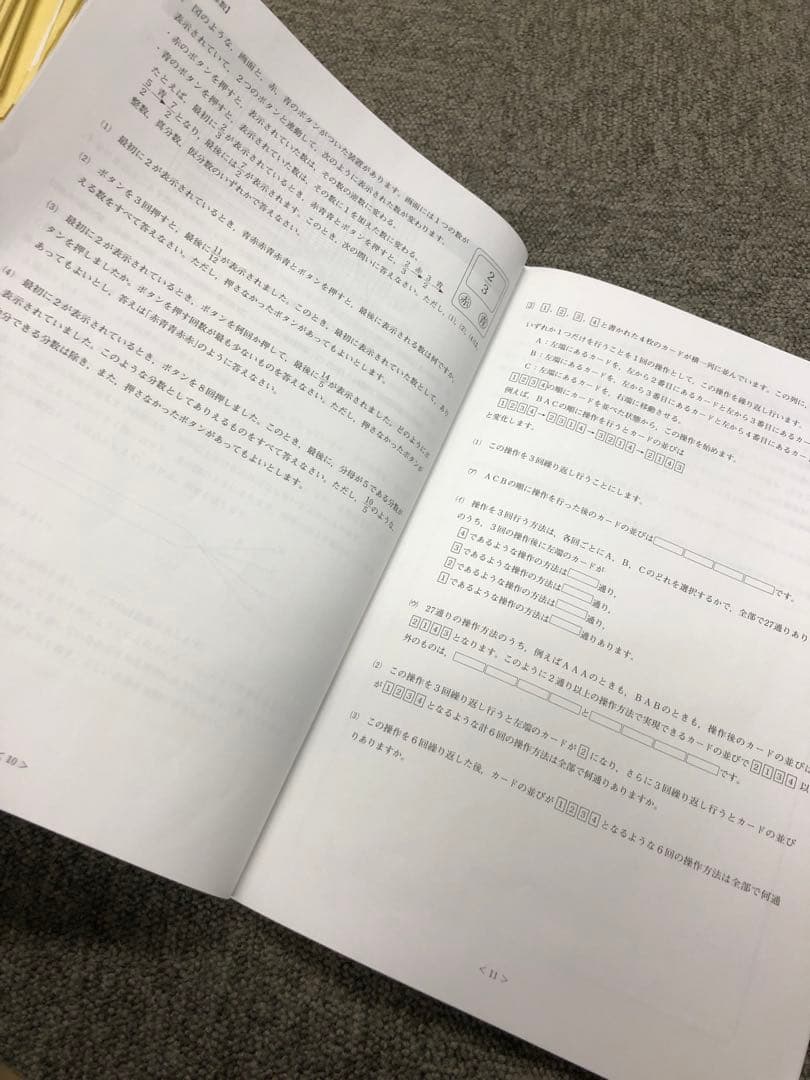 図のような,画面と,赤,青のボタンがついた装置があります。画面には1つの数が
表示されていて,2つのボタンと連動して,次のように表示された数が変わります。
・赤のボタンを押すと,表示されていた数は,その数の逆数に変わる。
・青のボタンを押すと,表示されていた数は,その数に1を加えた数に変わる。
たとえば,最初に2/3が表示されているとき,赤青青とボタンを押すと,2/3 赤→ 3/2 青→
5/2 青→ 7/2となり,最後には7/2が表示されます。このとき,次の問いに答えなさい。ただし,(1),(2),(4)は,
整数,真分数,仮分数のいずれかで答えなさい。
2/3
赤 青
(1) 最初に2が表示されているとき,青赤赤青赤青とボタンを押すと,最後に表示される数は何ですか。
(2) ボタンを3回押すと,最後に11/12が表示されました。このとき,最初に表示されていた数として,あり
える数をすべて答えなさい。ただし,押さなかったボタンがあってもよいとします。
(3) 最初に2が表示されているとき,ボタンを何回か押して,最後に14/5が表示されました。どのようにボ
タンを押しましたか。ボタンを押す回数が最も少ないものを答えなさい。ただし,押さなかったボタンが
あってもよいとし,答えは「赤青青赤赤」のように答えなさい。
(4) 最初に2が表示されているとき,ボタンを8回押しました。このとき,最後に,分母が5である分数が
表示されていました。このような分数としてありえるものをすべて答えなさい。ただし,10/5のような,
約分できる分数は除き,また,押さなかったボタンがあってもよいとします。
<10>
[3] 1,2,3,4と書かれた4枚のカードが横一列に並んでいます。この列に,
いずれか1つだけを行うことを1回の操作として,この操作を繰り返し行います。
A:左端にあるカードを,左から2番目にあるカードと左から3番目にあるカー
B:左端にあるカードを,左から3番目にあるカードと左から4番目にあるカー
C:左端にあるカードを,右端に移動させる。
1234の順にカードを並べた状態から,この操作を始めます。
例えば,BACの順に操作を行うとカードの並びは
1234→2314→3214→2143
と変化します。
(1) この操作を3回繰り返し行うことにします。
(ア) ACBの順に操作を行った後のカードの並びは□□□□です。
(イ) 操作を3回行う方法は,各回ごとにA,B,Cのどれを選択するかで,全部で27通りあり
のうち,3回の操作後に左端のカードが
4であるような操作の方法は□通り,
3であるような操作の方法は□通り,
2であるような操作の方法は□通り,
1であるような操作の方法は□通りあります。
(ウ) 27通りの操作方法のうち,例えばAAAのときも,BABのときも,操作後のカードの並びは
2143となります。このように2通り以上の操作方法で実現できるカードの並びで2134以
外のものは,□□□□と□□□□です。
(2) この操作を3回繰り返し行うと左端のカードが2になり,さらに3回繰り返し行うとカードの並び
が1234となるような計6回の操作方法は全部で何通りありますか。
(3) この操作を6回繰り返した後,カードの並びが1234となるような6回の操作方法は全部で何通
りありますか。
<11>